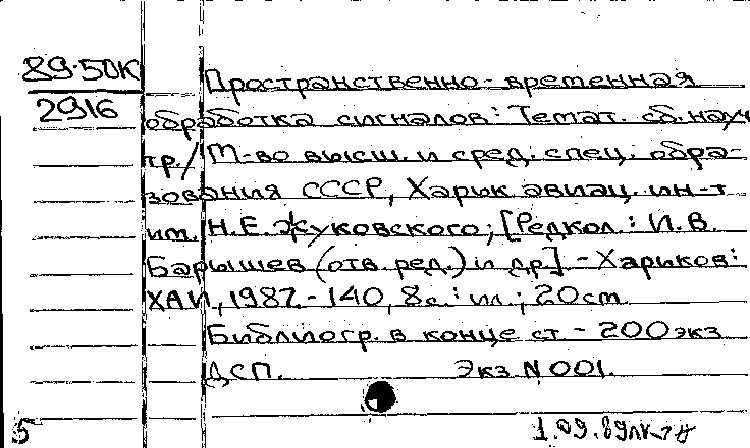 89-50К
2916
Пространственно-временная
обработка сигналов: Темат. сб. науч
тр./ М-во высш. и сред. спец. обра-
зования СССР, Харьк авиац. ин-т
им. Н.Е. Жуковского; [Редкол.: И.В.
Барышев (отв. ред.) и др] - Харьков:
ХАИ, 1987. - 140, 8 с.: ил.; 20 cm
Библиогр. в конце ст. - 200 экз
ДСП. Экз N 001.
5
1.09.89